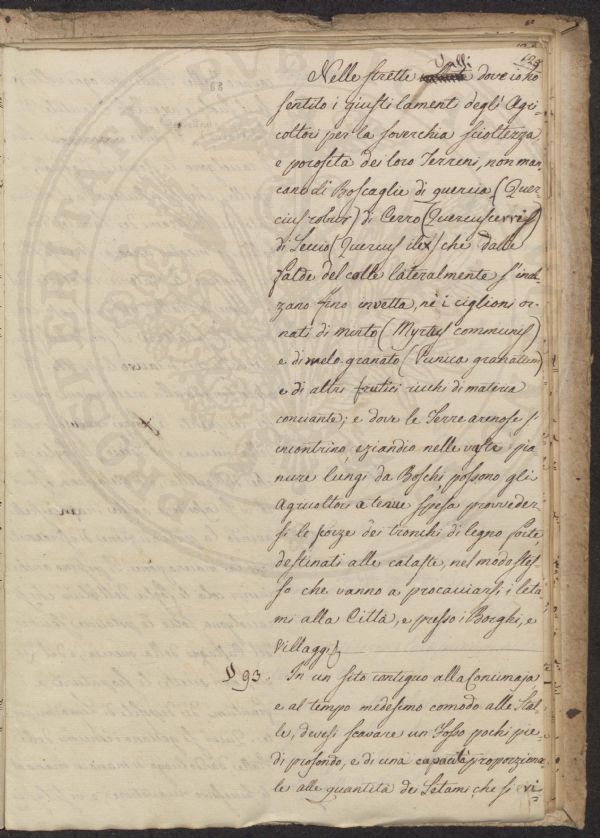 123
Nelle strette Valli dove io ho
sentito i giusti lamenti degli Agri=
coltori per la soverchia scioltezza
e porosità dei loro Terreni, non man=
cano di Boscaglie di quercia (Quer=
cius robur) di Cerro (Quercus cerris)
di Leccio (Quercus ilex) che dalle
falde del colle lateralmente s'inal=
zano fino in vetta, nè i ciglioni or=
nati di mirto (Myrtus communis)
e di melo granato (Punica granatum)
e di altri frutici ricchi di materia
conciante; e dove le Terre arenose s'
incontrino eziandio nelle vaste pia=
nure lungi da Boschi possono gli
Agricoltori a tenue spesa provveder=
si le scorze dei tronchi di legno forte
destinati alle cataste, nel modo stes=
so che vanno a procacciarsi i leta=
mi alla Città, e presso i Borghi, e
Villaggi
§ 93. In un sito contiguo alla Concimaja
e al tempo medesimo comodo alle Stal=
le, devesi scavare un Fosso pochi pie=
di profondo, e di una capacità proporziona=
le alle quantità dei Letami che si vi=